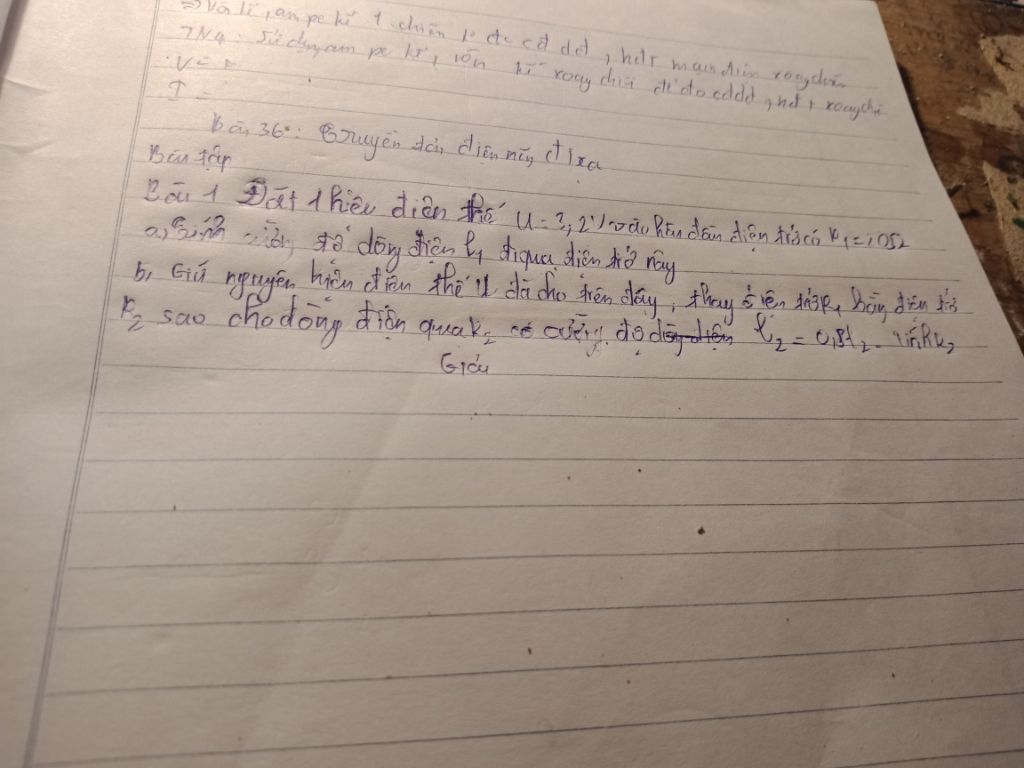 ampe kế 1 chiều
TN4: Sử dụng ampe kế, vôn kế xoay chiều để đo cđdđ, hđt xoay chiều
V =
I =
Bài 36: Truyền tải điện năng đi xa
Bài tập
Bài 1 Đặt 1 hiệu điện thế U = 3,2V vào hai đầu điện trở có R1 = 10Ω
a, Tính cường độ dòng điện I1 đi qua điện trở này
b, Giữ nguyên hiệu điện thế U đã cho trên đây, thay điện trở R1 bằng điện trở
R2 sao cho dòng điện qua R2 có cường độ I2 = 0,8I2. Tính R2
Giải